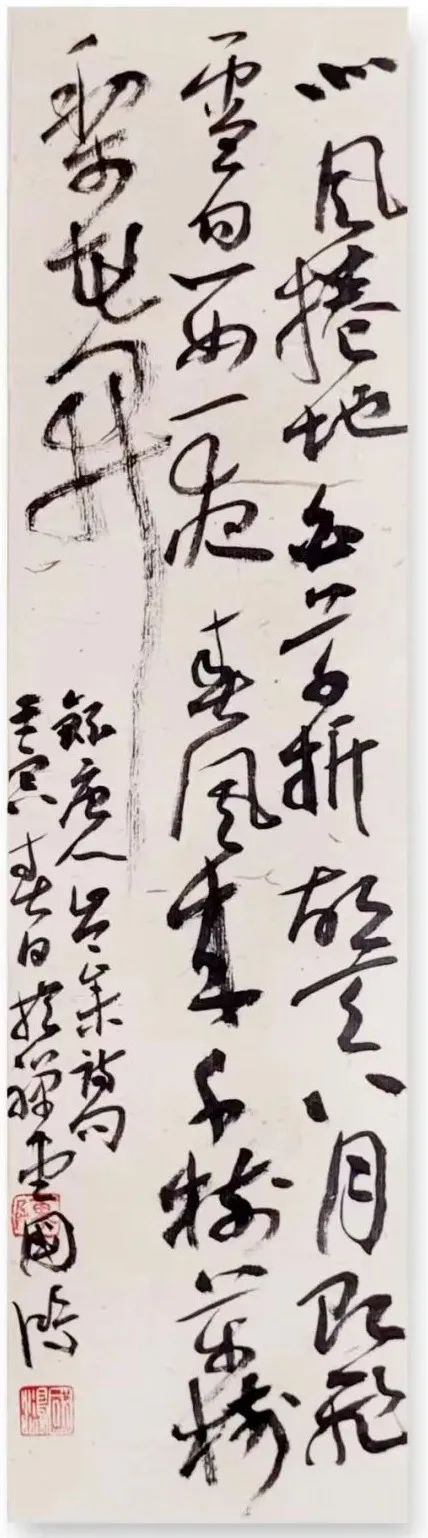 北風捲地白草折胡天八月即飛
雪忽如一夜春風来千樹萬樹
梨花開
錄唐人岑參詩句
壬寅春日於禪雲國